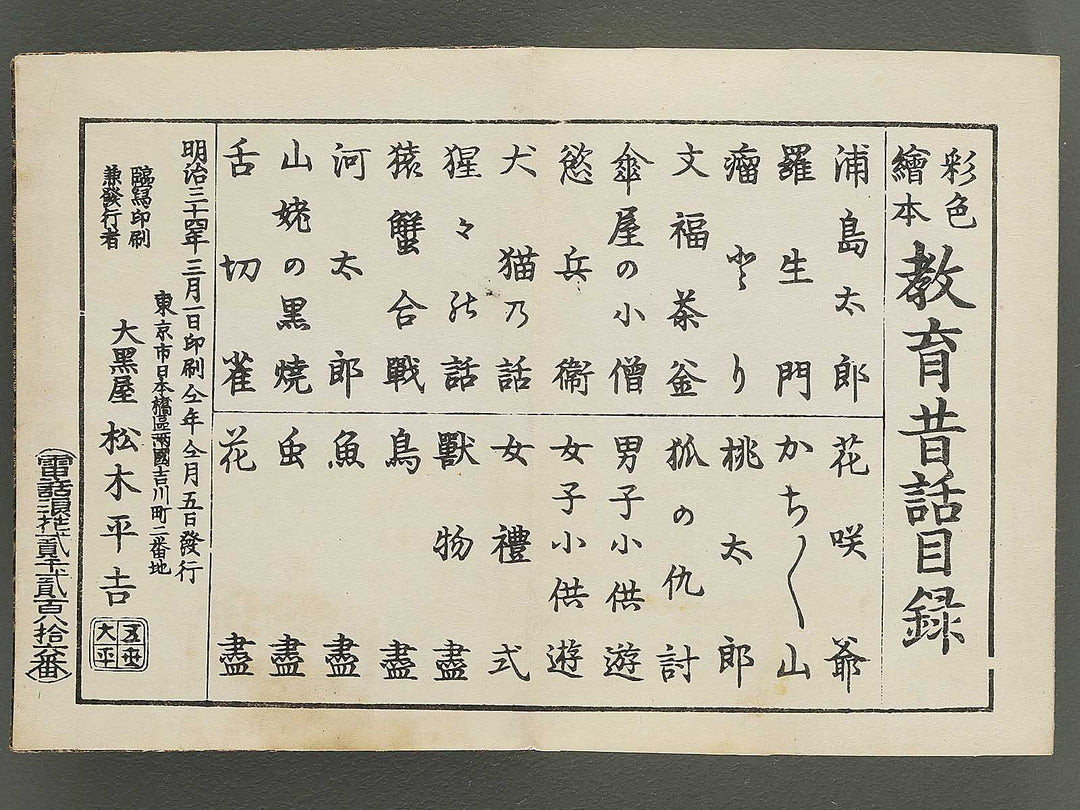 彩色
繪本
教育昔話目録
浦島太郎
羅生門
瘤とり
文福茶釜
傘屋の小僧
慾兵衞
犬猫乃話
猩々の話
猿蟹合戰
河太郎
山姥の黒燒
舌切雀
花咲爺
かち〱山
桃太郎
狐の仇討
男子小供遊
女子小供遊
女禮式
獸物盡
鳥盡
魚盡
虫盡
花盡
明治三十四年三月一日印刷仝年仝月五日發行
東京市日本橋區兩國吉川町二番地
臨寫印刷
兼發行者
大黑屋 松木平吉
(電話浪花貳千貳百八拾六番)
大平